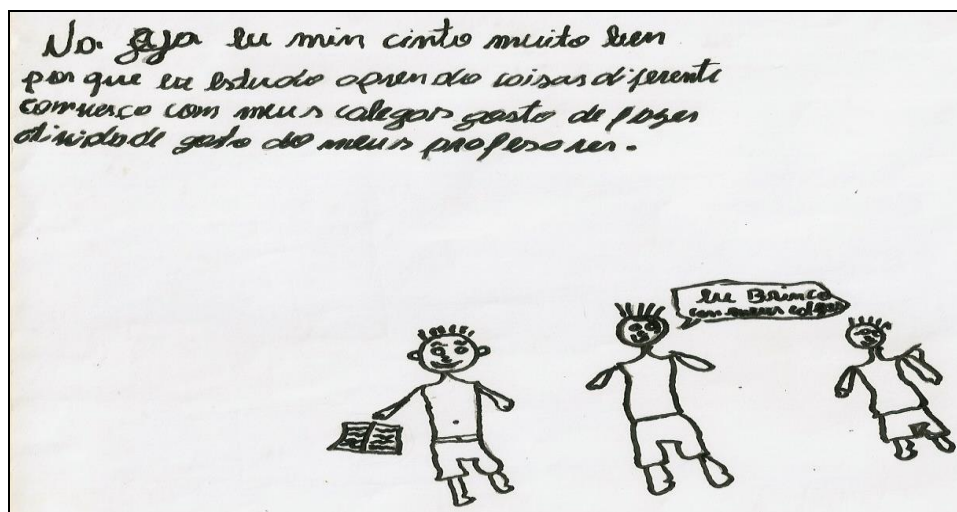 No. eu min cinto muito bem
por que eu estudo aprendo coisas diferente
comverço com meus colegas gosto de fazer
atividade gosto do meus profesores.
eu Brinco
com meus colegas